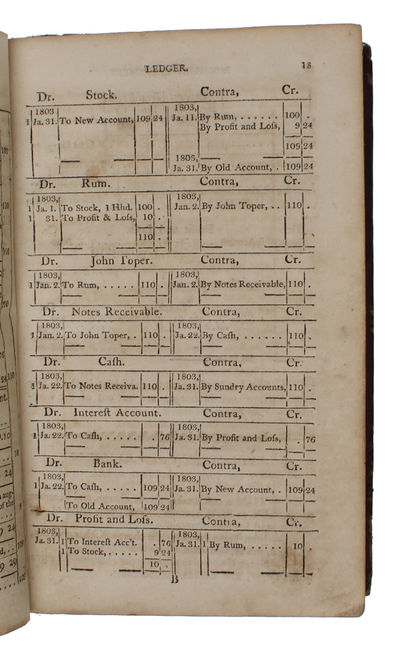 LEDGER. 18
Dr. Stock. Contra, Cr.
1803 1803,
1 Ja. 31. To New Account, 109 24 Ja. 11. By Rum, . . . . . . 100 .
By Profit and Loſs, 9 24
109 24
1803,
Ja. 31. By Old Account, . 109 24
Dr. Rum. Contra, Cr.
1803, 1803,
1 Ja. 1. To Stock, 1 Hhd. 100 . Jan. 2. By John Toper, . . 110 .
1 31. To Profit & Loſs, 10 .
110 .
Dr. John Toper. Contra, Cr.
1803, 1803,
1 Jan. 2. To Rum, . . . . . 110 . Jan. 2. By Notes Receivable, 110 .
Dr. Notes Receivable. Contra, Cr.
1803, 1803,
1 Jan. 2. To John Toper, . 110 . Ja. 22. By Caſh, . . . . . . . 110 .
Dr. Caſh. Contra, Cr.
1803, 1803,
Ja. 22. To Notes Receiva. 110 . Ja. 31. By Sundry Accounts, 110 .
Dr. Intereſt Account. Contra, Cr.
1803, 1803,
1 Ja. 22. To Caſh, . . . . . . 76 Ja. 31. By Profit and Loſs, . 76
Dr. Bank. Contra, Cr.
1803, 1803,
1 Ja. 22. To Caſh, . . . . . 109 24 Ja. 31. By New Account, . . 109 24
To Old Account, 109 24
Dr. Profit and Loſs. Contra, Cr.
1803, 1803,
Ja. 31. 1 To Intereſt Acc't. . 76 Ja. 31. 1 By Rum, . . . . . . 10 .
1 To Stock, . . . . . 9 24
10 .
B